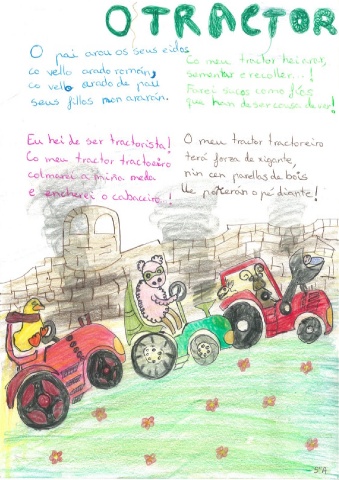 O TRACTOR
O pai arou os seus eidos
co vello arado román,
co vello arado de pau
seus fillos non ararán.
Co meu tractor hei arar,
sementar e recoller...!
Farei sucos como ríos
que han de ser cousa de ver!
Eu hei de ser tractorista!
Co meu tractor tractoreiro
colmarei a miña meda
e encherei o cabaceiro!
O meu tractor tractoreiro
terá forza de xigante,
nin cen parellas de bois
lle poñerán o pé diante!
5ºA